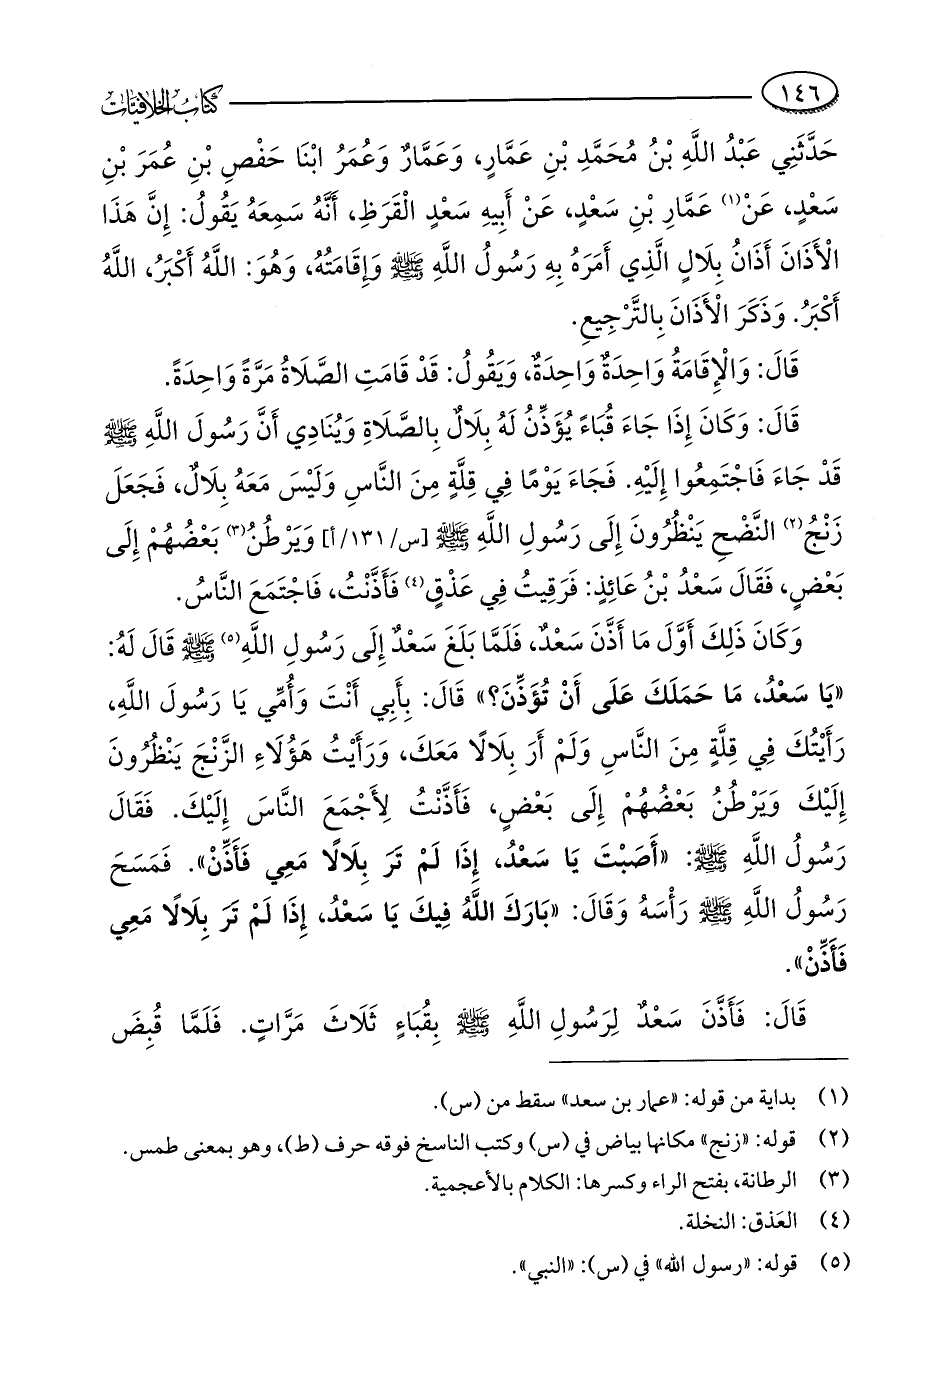 ١٤٦
كتاب الخلافيات
حَدَّثَنِي عَبْدُ اللَّهِ بْنُ مُحَمَّدِ بْنِ عَمَّارٍ، وَعَمَّارٌ وَعُمَرُ ابْنَا حَفْصِ بْنِ عُمَرَ بْنِ
سَعْدٍ، عَنْ(١) عَمَّارِ بْنِ سَعْدٍ، عَنْ أَبِيهِ سَعْدٍ الْقَرَظِ، أَنَّهُ سَمِعَهُ يَقُولُ: إِنَّ هَذَا
الْأَذَانَ أَذَانُ بِلَالٍ الَّذِي أَمَرَهُ بِهِ رَسُولُ اللَّهِ ﷺ وَإِقَامَتُهُ، وَهُوَ: اللَّهُ أَكْبَرُ، اللَّهُ
أَكْبَرُ. وَذَكَرَ الْأَذَانَ بِالتَّرْجِيعِ.
قَالَ: وَالْإِقَامَةُ وَاحِدَةٌ وَاحِدَةٌ، وَيَقُولُ: قَدْ قَامَتِ الصَّلَاةُ مَرَّةً وَاحِدَةً.
قَالَ: وَكَانَ إِذَا جَاءَ قُبَاءً يُؤَذِّنُ لَهُ بِلَالٌ بِالصَّلَاةِ وَيُنَادِي أَنَّ رَسُولَ اللَّهِ ﷺ
قَدْ جَاءَ فَاجْتَمِعُوا إِلَيْهِ. فَجَاءَ يَوْمًا فِي قِلَّةٍ مِنَ النَّاسِ وَلَيْسَ مَعَهُ بِلَالٌ، فَجَعَلَ
زَنْجُ(٢) النَّضْحِ يَنْظُرُونَ إِلَى رَسُولِ اللَّهِ ﷺ [س/١٣١/أ] وَيَرْطُنُ(٣) بَعْضُهُمْ إِلَى
بَعْضٍ، فَقَالَ سَعْدُ بْنُ عَائِذٍ: فَرَقِيتُ فِي عَذْقٍ(٤) فَأَذَّنْتُ، فَاجْتَمَعَ النَّاسُ.
وَكَانَ ذَلِكَ أَوَّلَ مَا أَذَّنَ سَعْدٌ، فَلَمَّا بَلَغَ سَعْدٌ إِلَى رَسُولِ اللَّهِ(٥) ﷺ قَالَ لَهُ:
«يَا سَعْدُ، مَا حَمَلَكَ عَلَى أَنْ تُؤَذِّنَ؟» قَالَ: بِأَبِي أَنْتَ وَأُمِّي يَا رَسُولَ اللَّهِ،
رَأَيْتُكَ فِي قِلَّةٍ مِنَ النَّاسِ وَلَمْ أَرَ بِلَالًا مَعَكَ، وَرَأَيْتُ هَؤُلَاءِ الزَّنْجَ يَنْظُرُونَ
إِلَيْكَ وَيَرْطُنُ بَعْضُهُمْ إِلَى بَعْضٍ، فَأَذَّنْتُ لِأَجْمَعَ النَّاسَ إِلَيْكَ. فَقَالَ
رَسُولُ اللَّهِ ﷺ: «أَصَبْتَ يَا سَعْدُ، إِذَا لَمْ تَرَ بِلَالًا مَعِي فَأَذِّنْ». فَمَسَحَ
رَسُولُ اللَّهِ ﷺ رَأْسَهُ وَقَالَ: «بَارَكَ اللَّهُ فِيكَ يَا سَعْدُ، إِذَا لَمْ تَرَ بِلَالًا مَعِي
فَأَذِّنْ».
قَالَ: فَأَذَّنَ سَعْدٌ لِرَسُولِ اللَّهِ ﷺ بِقُبَاءٍ ثَلَاثَ مَرَّاتٍ. فَلَمَّا قُبِضَ
(١) بداية من قوله: «عمار بن سعد» سقط من (س).
(٢) قوله: «زنج» مكانها بياض في (س) وكتب الناسخ فوقه حرف (ط)، وهو بمعنى طمس.
(٣) الرطانة، بفتح الراء وكسرها: الكلام بالأعجمية.
(٤) العَذق: النخلة.
(٥) قوله: «رسول الله» في (س): «النبي».